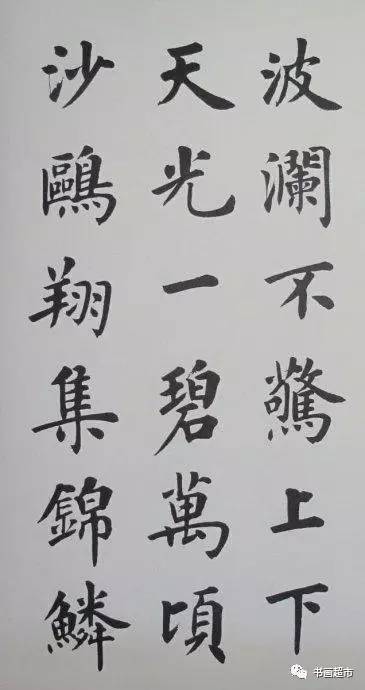 波瀾不驚上下
天光一碧萬頃
沙鷗翔集錦鱗
书画超市